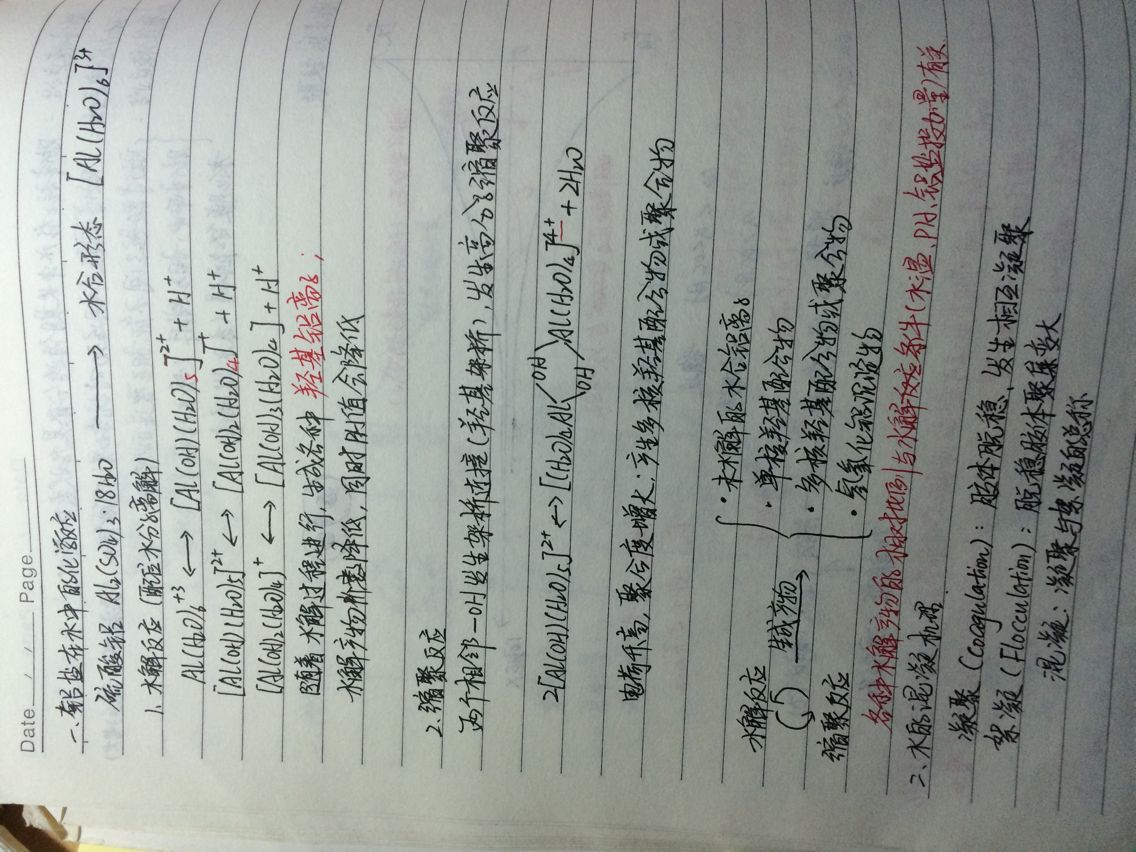 Date / / Page
一. 铝盐在水中的化学反应
硫酸铝 Al₂(SO₄)₃·18H₂O ⟶ 水合形态 [Al(H₂O)₆]³⁺
1. 水解反应 (配位水分子离解)
Al(H₂O)₆⁺³ ⟷ [Al(OH)(H₂O)₅]²⁺ + H⁺
[Al(OH)(H₂O)₅]²⁺ ⟷ [Al(OH)₂(H₂O)₄]⁺ + H⁺
[Al(OH)₂(H₂O)₄]⁺ ⟷ [Al(OH)₃(H₂O)₃] + H⁺
随着水解过程进行, 生成各种 羟基铝离子;
水解产物带电荷降低, 同时PH值会降低
2. 缩聚反应
两个相邻-OH发生架桥连接 (羟基架桥), 发生高分子缩聚反应
2[Al(OH)(H₂O)₅]²⁺ ⟷ [(H₂O)₄Al<OH OH>Al(H₂O)₄]⁴⁺ + 2H₂O
电荷升高, 聚合度增大; 产生多核羟基配合物或聚合物
水解反应
缩聚反应
生成物
· 未水解的水合铝离子
· 单核羟基配合物
· 多核羟基配合物或聚合物
· 氢氧化铝沉淀物
各种水解产物的相对比例与水解反应条件(水温、PH、铝盐投加量)有关
二、水的混凝机理
凝聚 (Coagulation): 胶体脱稳, 发生相互凝聚
絮凝 (Flocculation): 脱稳胶体聚集变大
混凝: 凝聚与絮凝的总称